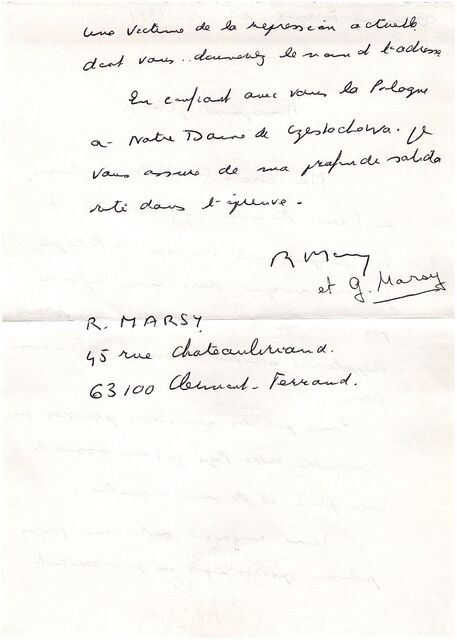 une victime de la repression actuelle
dont vous .. donnerez le nom et l'adresse
En confiant avec vous la Pologne
a- Notre Dame de Czestochowa. je
vous assure de ma profonde solida
rité dans l'épreuve -
R Marsy
et G. Marsy
R. MARSY
45 rue Chateaubriand.
63100 Clermont-Ferrand.